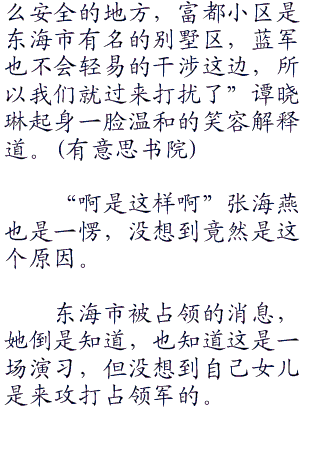 么安全的地方，富都小区是
东海市有名的别墅区，蓝军
也不会轻易的干涉这边，所
以我们就过来打扰了”谭晓
琳起身一脸温和的笑容解释
道。(有意思书院)
“啊是这样啊”张海燕
也是一愣，没想到竟然是这
个原因。
东海市被占领的消息，
她倒是知道，也知道这是一
场演习，但没想到自己女儿
是来攻打占领军的。